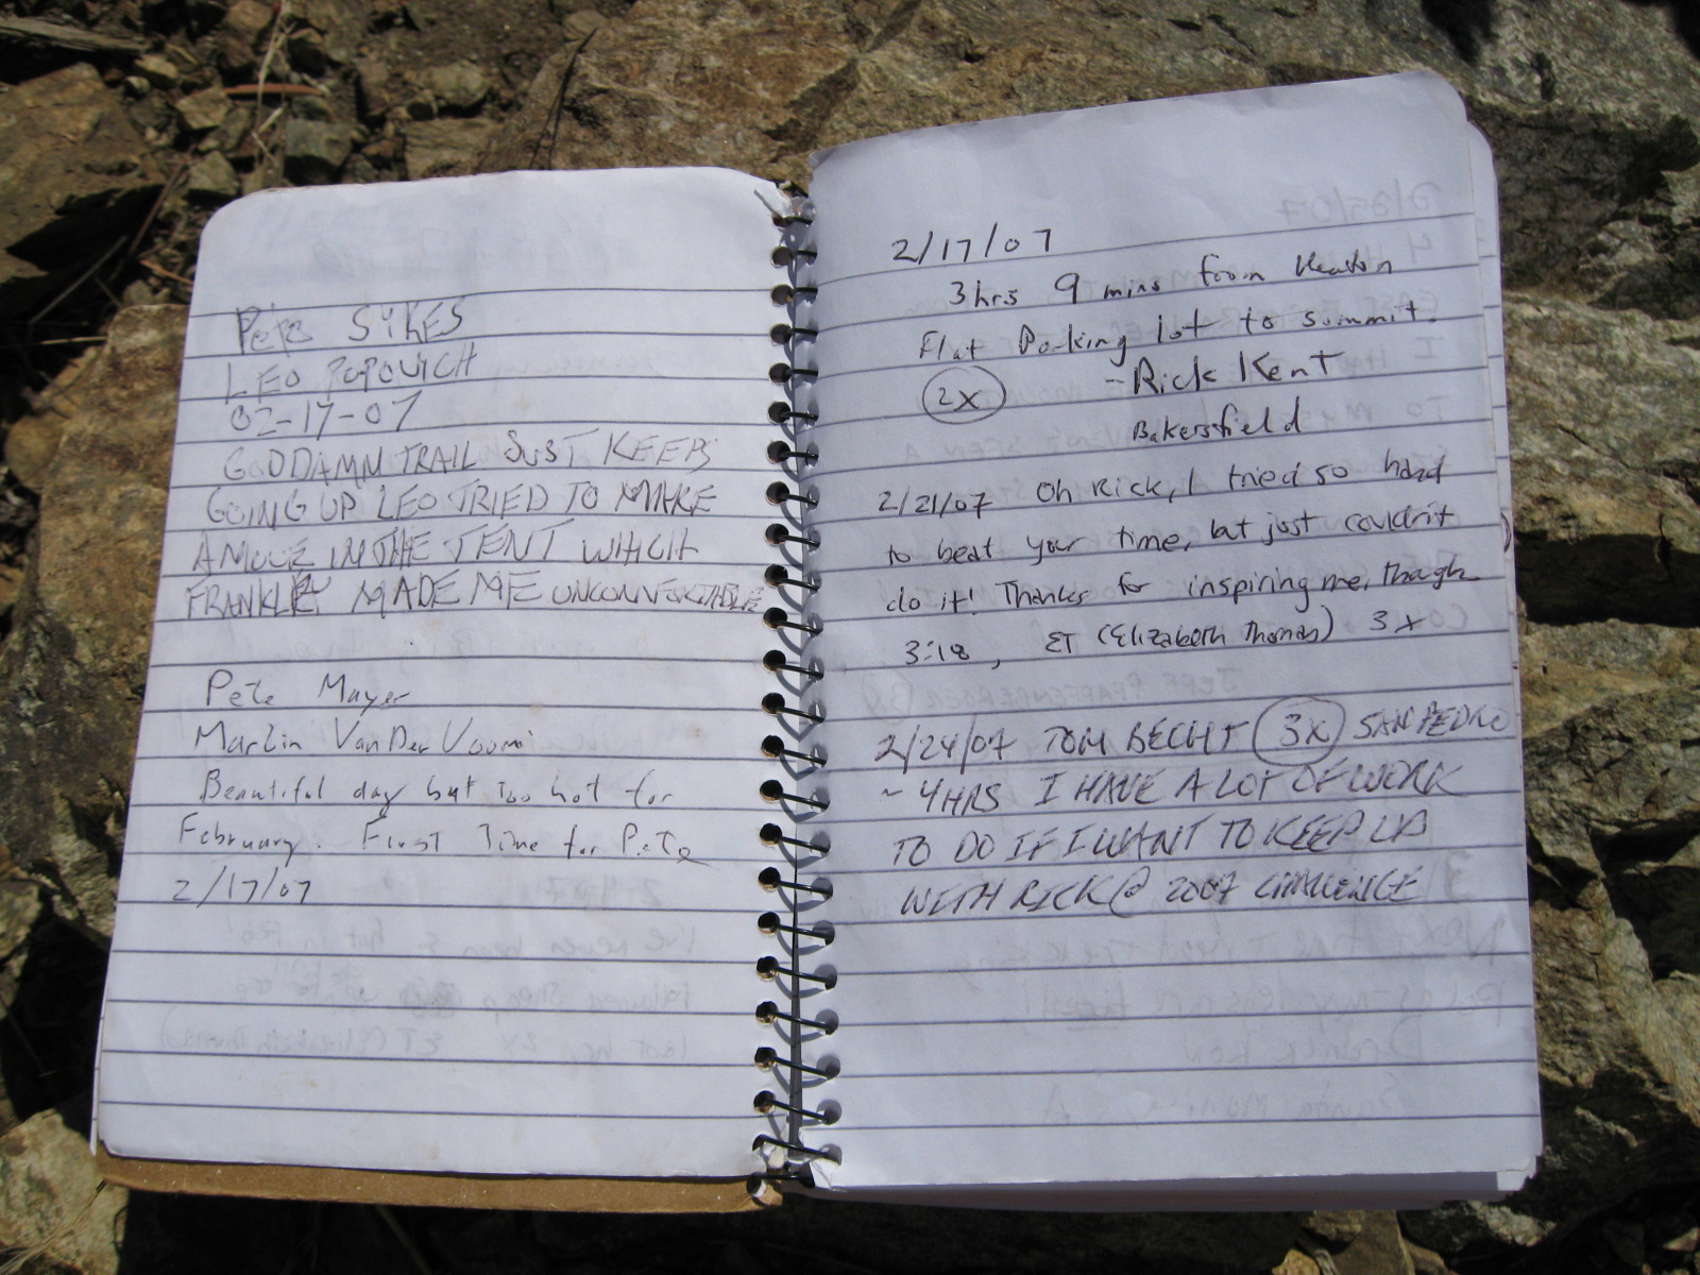 Pete SYKES
LEO POPOVICH
02-17-07
GODDAMN TRAIL JUST KEEPS
GOING UP LEO TRIED TO MAKE
A MOVE IN THE TENT WHICH
FRANKLEY MADE ME
Pete Mayer
Marlin VanDer
Beautiful day but Too hot for
February. First Time for Pete
2/17/07
2/17/07
3hrs 9 mins from Heaton
Flat Parking lot to summit.
2X - Rick Kent
Bakersfield
2/21/07 Oh Rick, I tried so hard
to beat your time, but just couldn't
do it! Thanks for inspiring me, though
3:18, ET (Elizabeth Thomas) 3x
2/24/07 TOM BECHT 3X SAN PEDRO
~ 4HRS I HAVE A LOT OF WORK
TO DO IF I WANT TO KEEP UP
WITH RICK @ 2007 CHALLENGE